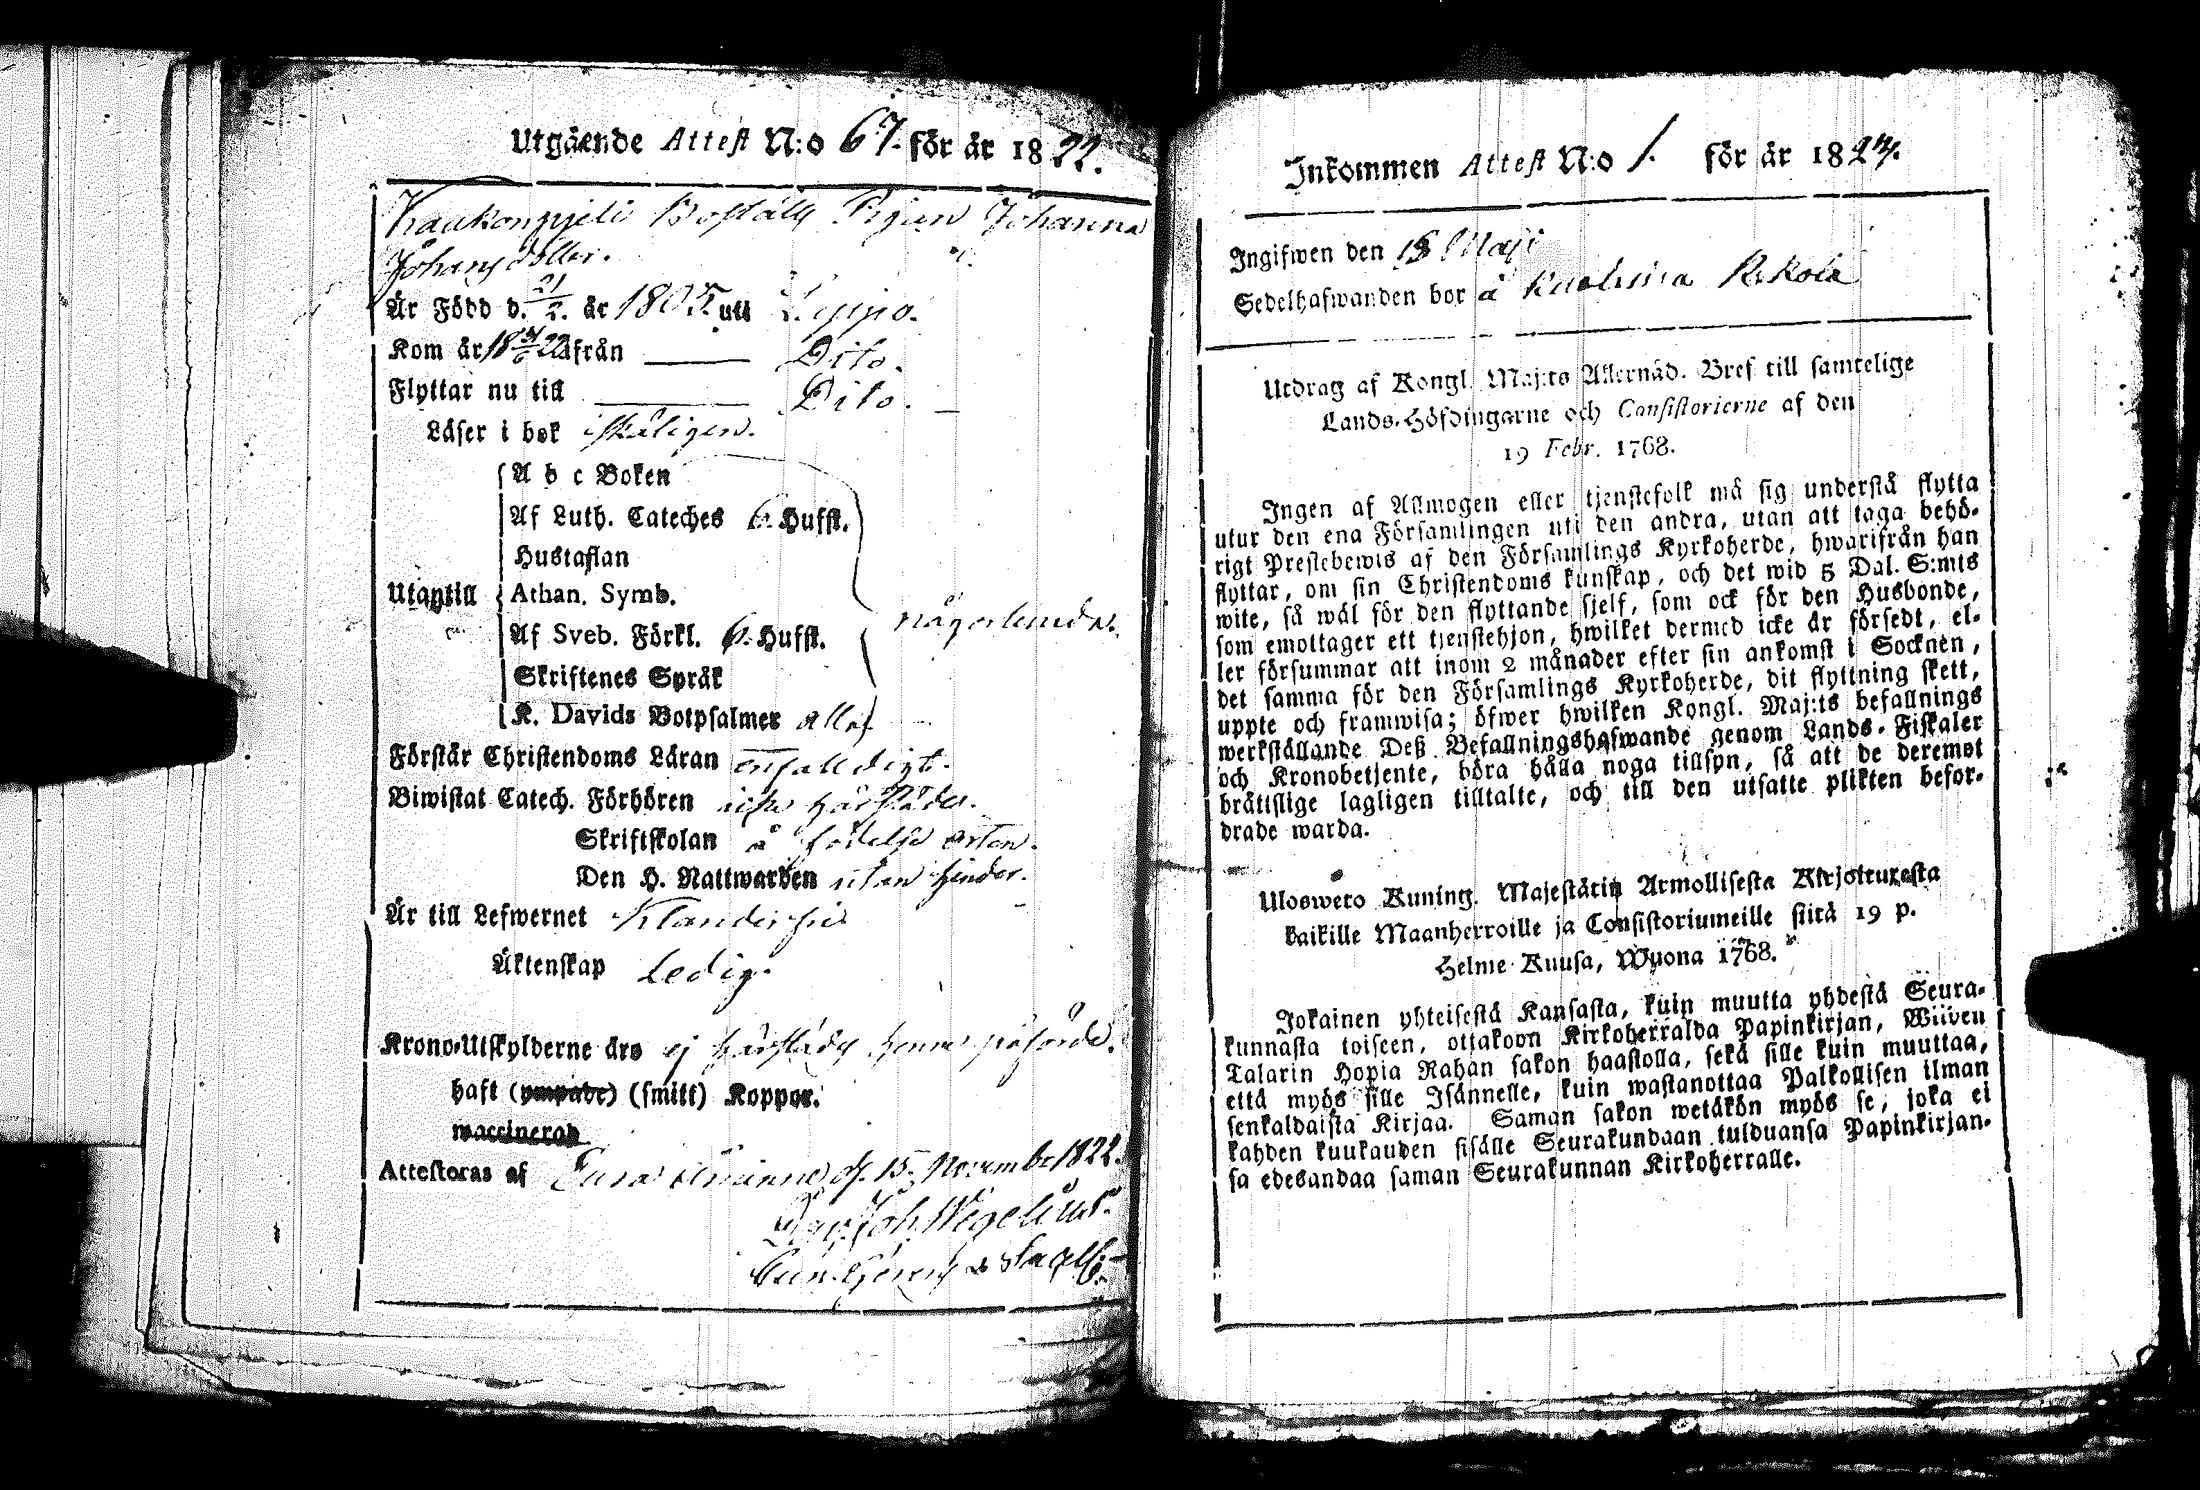 Utgående Attest N:o 67. för år 1822.
Kaukonpjeli Boställs Pigan Johanna
Johansdotter.
Är Född d. 21/2. år 1805. uti Loppo.
Kom år 18 22 från Dito.
Flyttar nu till Dito.
Läser i bok skäligen.
A b c Boken
Af Luth. Cateches 6. Hufst.
Hustaflan
Utantill Athan. Symb. någorlunda.
Af Sveb. Förkl. 6. Hufst.
Skriftenes Språk
K. Davids Botpsalmer alla
Förstår Christendoms Läran enfalldigt.
Biwistat Catech. Förhören icke härstädes.
Skriftskolan å födelse orten.
Den H. Nattwarden utan hinder.
Är till Lefwernet Klanderfri
Äktenskap Ledig.
Krono-Utskylderne äro ej härstädes henne påförde.
haft (ympade) (smitt) Koppor.
waccinerad
Attesteras af d. 15. November 1822.
Joh Wegelius.
Inkommen Attest N:o 1. för år 1824.
Ingifwen den 18 Maji
Sedelhafwanden bor å Rekola
Utdrag af Kongl. Maj:ts Allernåd. Bref till samtelige
Lands-Höfdingarne och Consistorierne af den
19 Febr. 1768.
Ingen af Allmogen eller tjenstefolk må sig understå flytta
utur den ena Församlingen uti den andra, utan att taga behö-
rigt Prestebewis af den Församlings Kyrkoherde, hwarifrån han
flyttar, om sin Christendoms kunskap, och det wid 5 Dal. S:mts
wite, så wäl för den flyttande sjelf, som ock för den Husbonde,
som emottager ett tjenstehjon, hwilket dermed icke är försedt, el-
ler försummar att inom 2 månader efter sin ankomst i Socknen,
det samma för den Församlings Kyrkoherde, dit flyttning skett,
uppte och framwisa; öfwer hwilken Kongl. Maj:ts befallnings
werkställande Deß Befallningshafwande genom Lands-Fiskaler
och Kronobetjente, böra hålla noga tillsyn, så att de deremot
brätislige lagligen tilltalte, och till den utsatte plikten befor-
drade warda.
Ulosweto Kuning. Majestätin Armollisesta Kirjoituxesta
kaikille Maanherroille ja Consistoriumeille siitä 19 p.
Helme-Kuusa, Wuona 1768.
Jokainen yhteisestä Kansasta, kuin muutta yhdestä Seura-
kunnasta toiseen, ottakoon Kirkoherralda Papinkirjan, Wiiven
Talarin Hopia Rahan sakon haastolla, sekä sille kuin muuttaa,
että myös sille Isännelle, kuin wastanottaa Palkollisen ilman
senkaldaista Kirjaa. Saman sakon wetäkön myös se, joka ei
kahden kuukauden sisälle Seurakundaan tulduansa Papinkirjan-
sa edesandaa saman Seurakunnan Kirkoherralle.